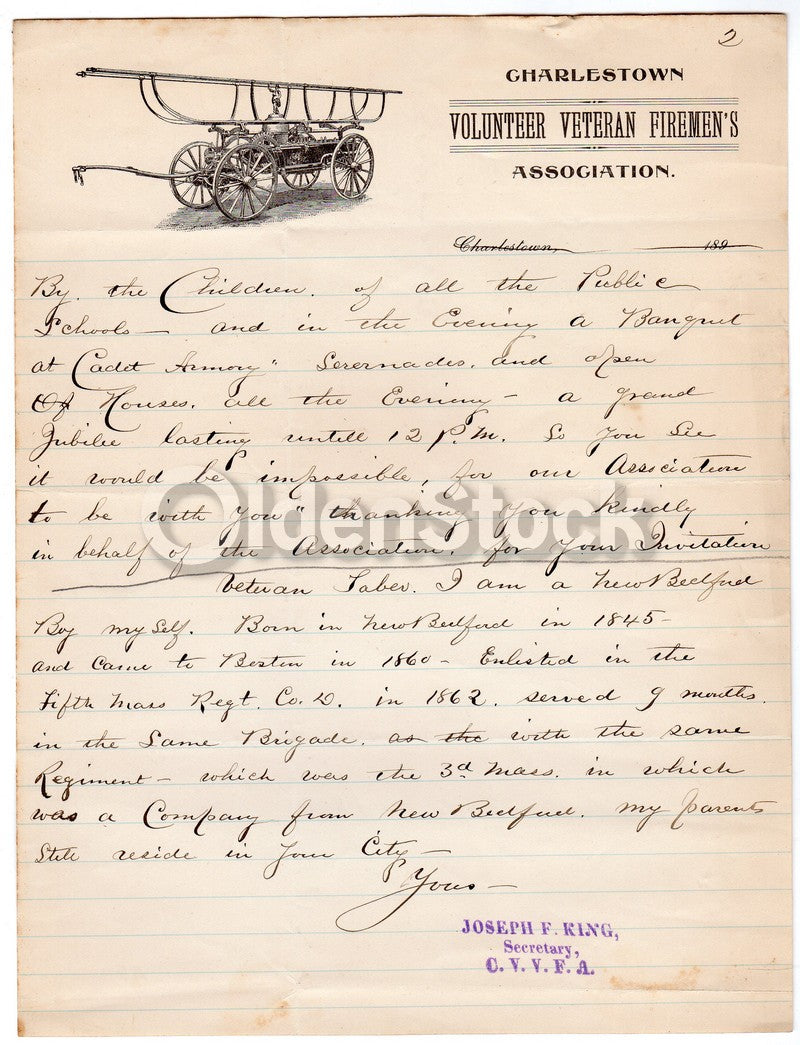 2
CHARLESTOWN
VOLUNTEER VETERAN FIREMEN'S
ASSOCIATION.
Charlestown, 189
By. the Children. of all the Public
Schools — and in the Evening a Banquet
at Cadet Armory" Serernades. and open
Of Houses. all the Evening — a grand
Jubilee lasting untill 12 P.M. So you see
it would be impossible, for our Association
to be with you" thanking you kindly
in behalf of the Association. for your Invitation
Veteran Taber. I am a New Bedford
Boy my self. Born in New Bedford in 1845 —
and came to Boston in 1860 — Enlisted in the
Fifth Mass Regt. Co. D. in 1862. served 9 months.
in the Same Brigade. as the with the same
Regiment — which was the 3d Mass. in which
was a Company from New Bedford. my parents
Still reside in your City —
Yous —
JOSEPH F. KING,
Secretary,
C. V. V. F. A.
OldenStock